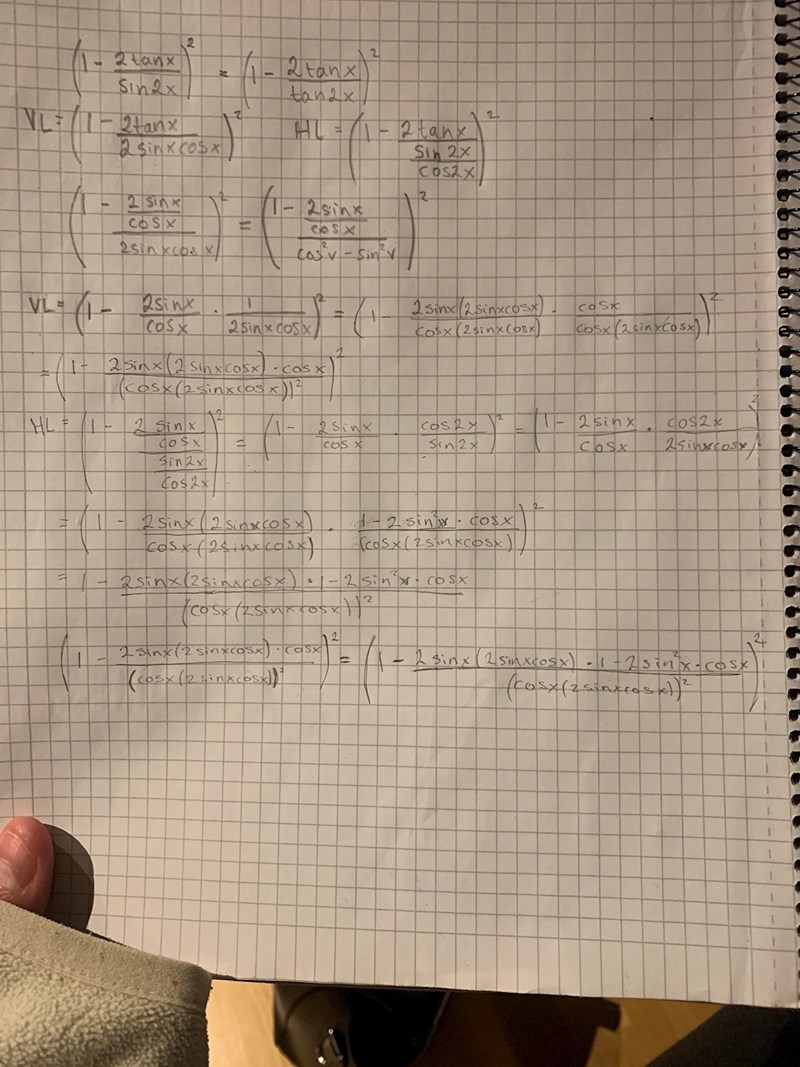 (1 - 2tanx/sin2x)² = (1 - 2tanx/tan2x)²
VL = (1 - 2tanx/2sinxcosx)² HL = (1 - 2tanx/(sin2x/cos2x))²
(1 - (2sinx/cosx)/2sinxcosx)² = (1 - (2sinx/cosx)/cos²v - sin²v)²
VL = (1 - 2sinx/cosx · 1/2sinxcosx)² = (1 - 2sinx(2sinxcosx)/cosx(2sinxcosx) · cosx/cosx(2sinxcosx))²
= (1 - 2sinx(2sinxcosx)·cosx/(cosx(2sinxcosx))²)²
HL = (1 - (2sinx/cosx)/(sin2x/cos2x))² = (1 - 2sinx/cosx · cos2x/sin2x)² = (1 - 2sinx/cosx · cos2x/2sinxcosx)²
= (1 - 2sinx(2sinxcosx)/cosx(2sinxcosx) · 1-2sin²x·cosx/(cosx(2sinxcosx))²
= 1 - 2sinx(2sinxcosx)·1-2sin²x·cosx/(cosx(2sinxcosx))²
(1 - 2sinx(2sinxcosx)·cosx/(cosx(2sinxcosx))²)² = (1 - 2sinx(2sinxcosx)·1-2sin²x·cosx/(cosx(2sinxcosx))²)²